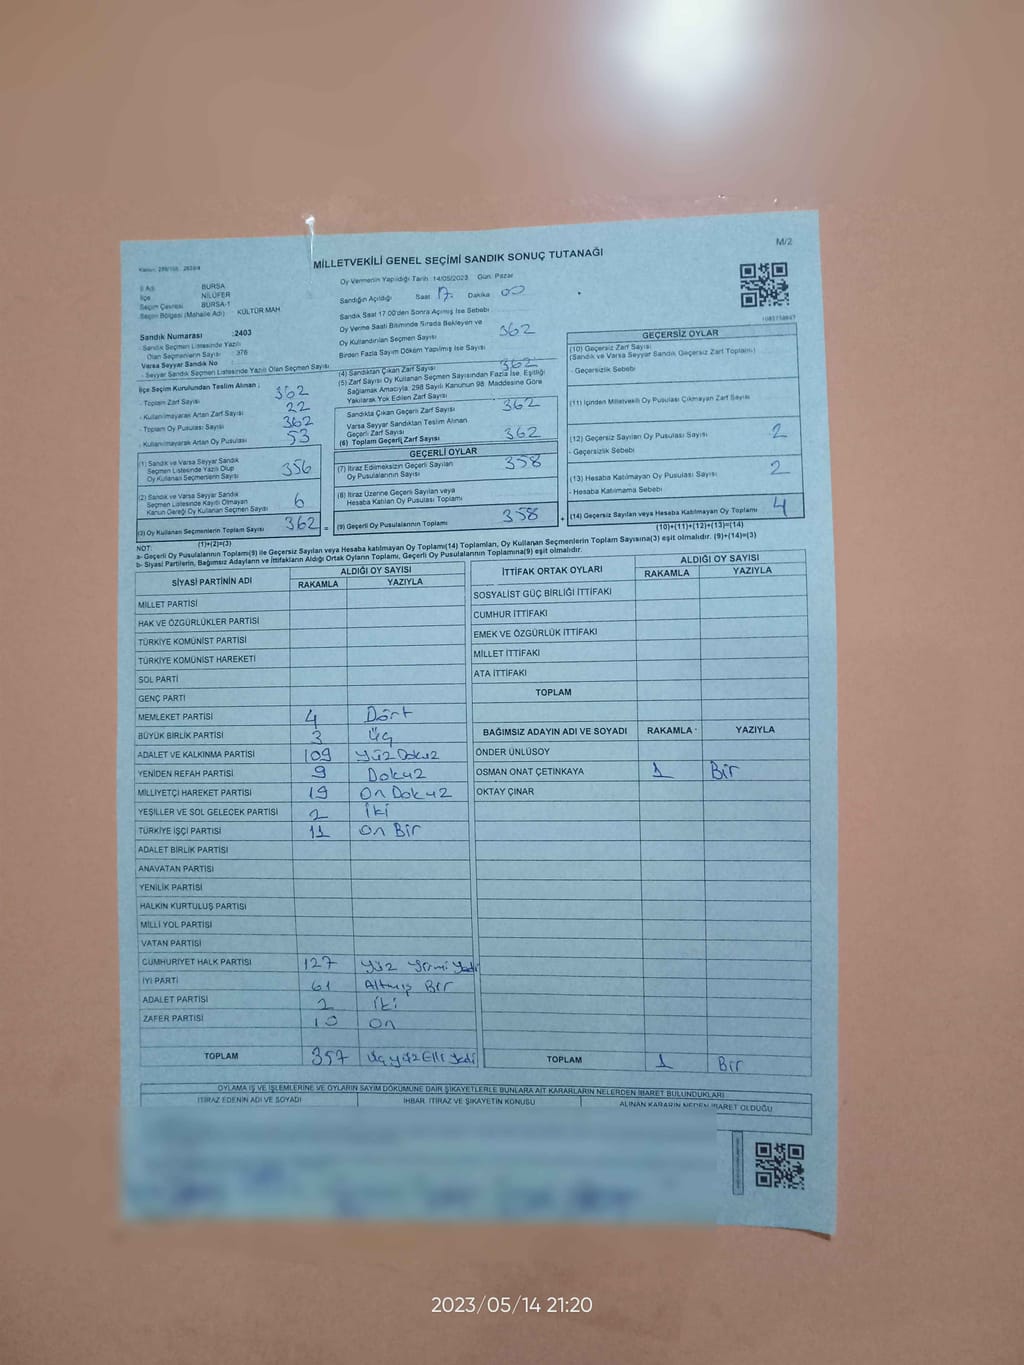 M/2
MİLLETVEKİLİ GENEL SEÇİMİ SANDIK SONUÇ TUTANAĞI
İl Adı BURSA
İlçe NİLÜFER
Seçim Çevresi BURSA-1
Seçim Bölgesi (Mahalle Adı) KÜLTÜR MAH
Sandık Numarası :2403
Sandık Seçmen Listesinde Yazılı
Olan Seçmenlerin Sayısı 376
Varsa Seyyar Sandık No
Seyyar Sandık Seçmen Listesinde Yazılı Olan Seçmen Sayısı
İlçe Seçim Kurulundan Teslim Alınan ;
- Toplam Zarf Sayısı 362
- Kullanılmayarak Artan Zarf Sayısı 22
- Toplam Oy Pusulası Sayısı 362
- Kullanılmayarak Artan Oy Pusulası 53
(1) Sandık ve Varsa Seyyar Sandık
Seçmen Listesinde Yazılı Olup
Oy Kullanan Seçmenlerin Sayısı 356
(2) Sandık ve Varsa Seyyar Sandık
Seçmen Listesinde Kayıtlı Olmayan
Kanun Gereği Oy Kullanan Seçmen Sayısı 6
(3) Oy Kullanan Seçmenlerin Toplam Sayısı 362 =
(1)+(2)=(3)
Oy Vermenin Yapıldığı Tarih :14/05/2023 Gün: Pazar
Sandığın Açıldığı Saat 17. Dakika 00
Sandık Saat 17:00'den Sonra Açılmış İse Sebebi
Oy Verme Saati Bitiminde Sırada Bekleyen ve
Oy Kullandırılan Seçmen Sayısı 362
Birden Fazla Sayım Döküm Yapılmış İse Sayısı
(4) Sandıktan Çıkan Zarf Sayısı 362
(5) Zarf Sayısı Oy Kullanan Seçmen Sayısından Fazla İse, Eşitliği
Sağlamak Amacıyla, 298 Sayılı Kanunun 98. Maddesine Göre
Yakılarak Yok Edilen Zarf Sayısı
Sandıkta Çıkan Geçerli Zarf Sayısı 362
Varsa Seyyar Sandıktan Teslim Alınan
Geçerli Zarf Sayısı
(6) Toplam Geçerli Zarf Sayısı 362
GEÇERLİ OYLAR
(7) İtiraz Edilmeksizin Geçerli Sayılan
Oy Pusulalarının Sayısı 358
(8) İtiraz Üzerine Geçerli Sayılan veya
Hesaba Katılan Oy Pusulası Toplamı
(9) Geçerli Oy Pusulalarının Toplamı 358 +
GEÇERSİZ OYLAR
(10) Geçersiz Zarf Sayısı
(Sandık ve Varsa Seyyar Sandık Geçersiz Zarf Toplamı)
- Geçersizlik Sebebi
(11) İçinden Milletvekili Oy Pusulası Çıkmayan Zarf Sayısı
(12) Geçersiz Sayılan Oy Pusulası Sayısı 2
- Geçersizlik Sebebi
(13) Hesaba Katılmayan Oy Pusulası Sayısı 2
- Hesaba Katılmama Sebebi
(14) Geçersiz Sayılan veya Hesaba Katılmayan Oy Toplamı 4
(10)+(11)+(12)+(13)=(14)
NOT:
a- Geçerli Oy Pusulalarının Toplamı(9) ile Geçersiz Sayılan veya Hesaba katılmayan Oy Toplamı(14) Toplamları, Oy Kullanan Seçmenlerin Toplam Sayısına(3) eşit olmalıdır. (9)+(14)=(3)
b- Siyasi Partilerin, Bağımsız Adayların ve İttifakların Aldığı Ortak Oyların Toplamı, Geçerli Oy Pusulalarının Toplamına(9) eşit olmalıdır.
SİYASİ PARTİNİN ADI ALDIĞI OY SAYISI
RAKAMLA YAZIYLA
MİLLET PARTİSİ
HAK VE ÖZGÜRLÜKLER PARTİSİ
TÜRKİYE KOMÜNİST PARTİSİ
TÜRKİYE KOMÜNİST HAREKETİ
SOL PARTİ
GENÇ PARTİ
MEMLEKET PARTİSİ 4 Dört
BÜYÜK BİRLİK PARTİSİ 3 Üç
ADALET VE KALKINMA PARTİSİ 109 Yüz Dokuz
YENİDEN REFAH PARTİSİ 9 Dokuz
MİLLİYETÇİ HAREKET PARTİSİ 19 On Dokuz
YEŞİLLER VE SOL GELECEK PARTİSİ 2 İki
TÜRKİYE İŞÇİ PARTİSİ 11 On Bir
ADALET BİRLİK PARTİSİ
ANAVATAN PARTİSİ
YENİLİK PARTİSİ
HALKIN KURTULUŞ PARTİSİ
MİLLİ YOL PARTİSİ
VATAN PARTİSİ
CUMHURİYET HALK PARTİSİ 127 Yüz Yirmi Yedi
İYİ PARTİ 61 Altmış Bir
ADALET PARTİSİ 2 İki
ZAFER PARTİSİ 10 On
TOPLAM 357 Üçyüz Elli Yedi
İTTİFAK ORTAK OYLARI ALDIĞI OY SAYISI
RAKAMLA YAZIYLA
SOSYALİST GÜÇ BİRLİĞİ İTTİFAKI
CUMHUR İTTİFAKI
EMEK VE ÖZGÜRLÜK İTTİFAKI
MİLLET İTTİFAKI
ATA İTTİFAKI
TOPLAM
BAĞIMSIZ ADAYIN ADI VE SOYADI RAKAMLA YAZIYLA
ÖNDER ÜNLÜSOY
OSMAN ONAT ÇETİNKAYA 1 Bir
OKTAY ÇINAR
TOPLAM 1 Bir
OYLAMA İŞ VE İŞLEMLERİNE VE OYLARIN SAYIM DÖKÜMÜNE DAİR ŞİKAYETLERLE BUNLARA AİT KARARLARIN NELERDEN İBARET BULUNDUKLARI
İTİRAZ EDENİN ADI VE SOYADI İHBAR, İTİRAZ VE ŞİKAYETİN KONUSU ALINAN KARARIN NEDEN İBARET OLDUĞU
2023/05/14 21:20